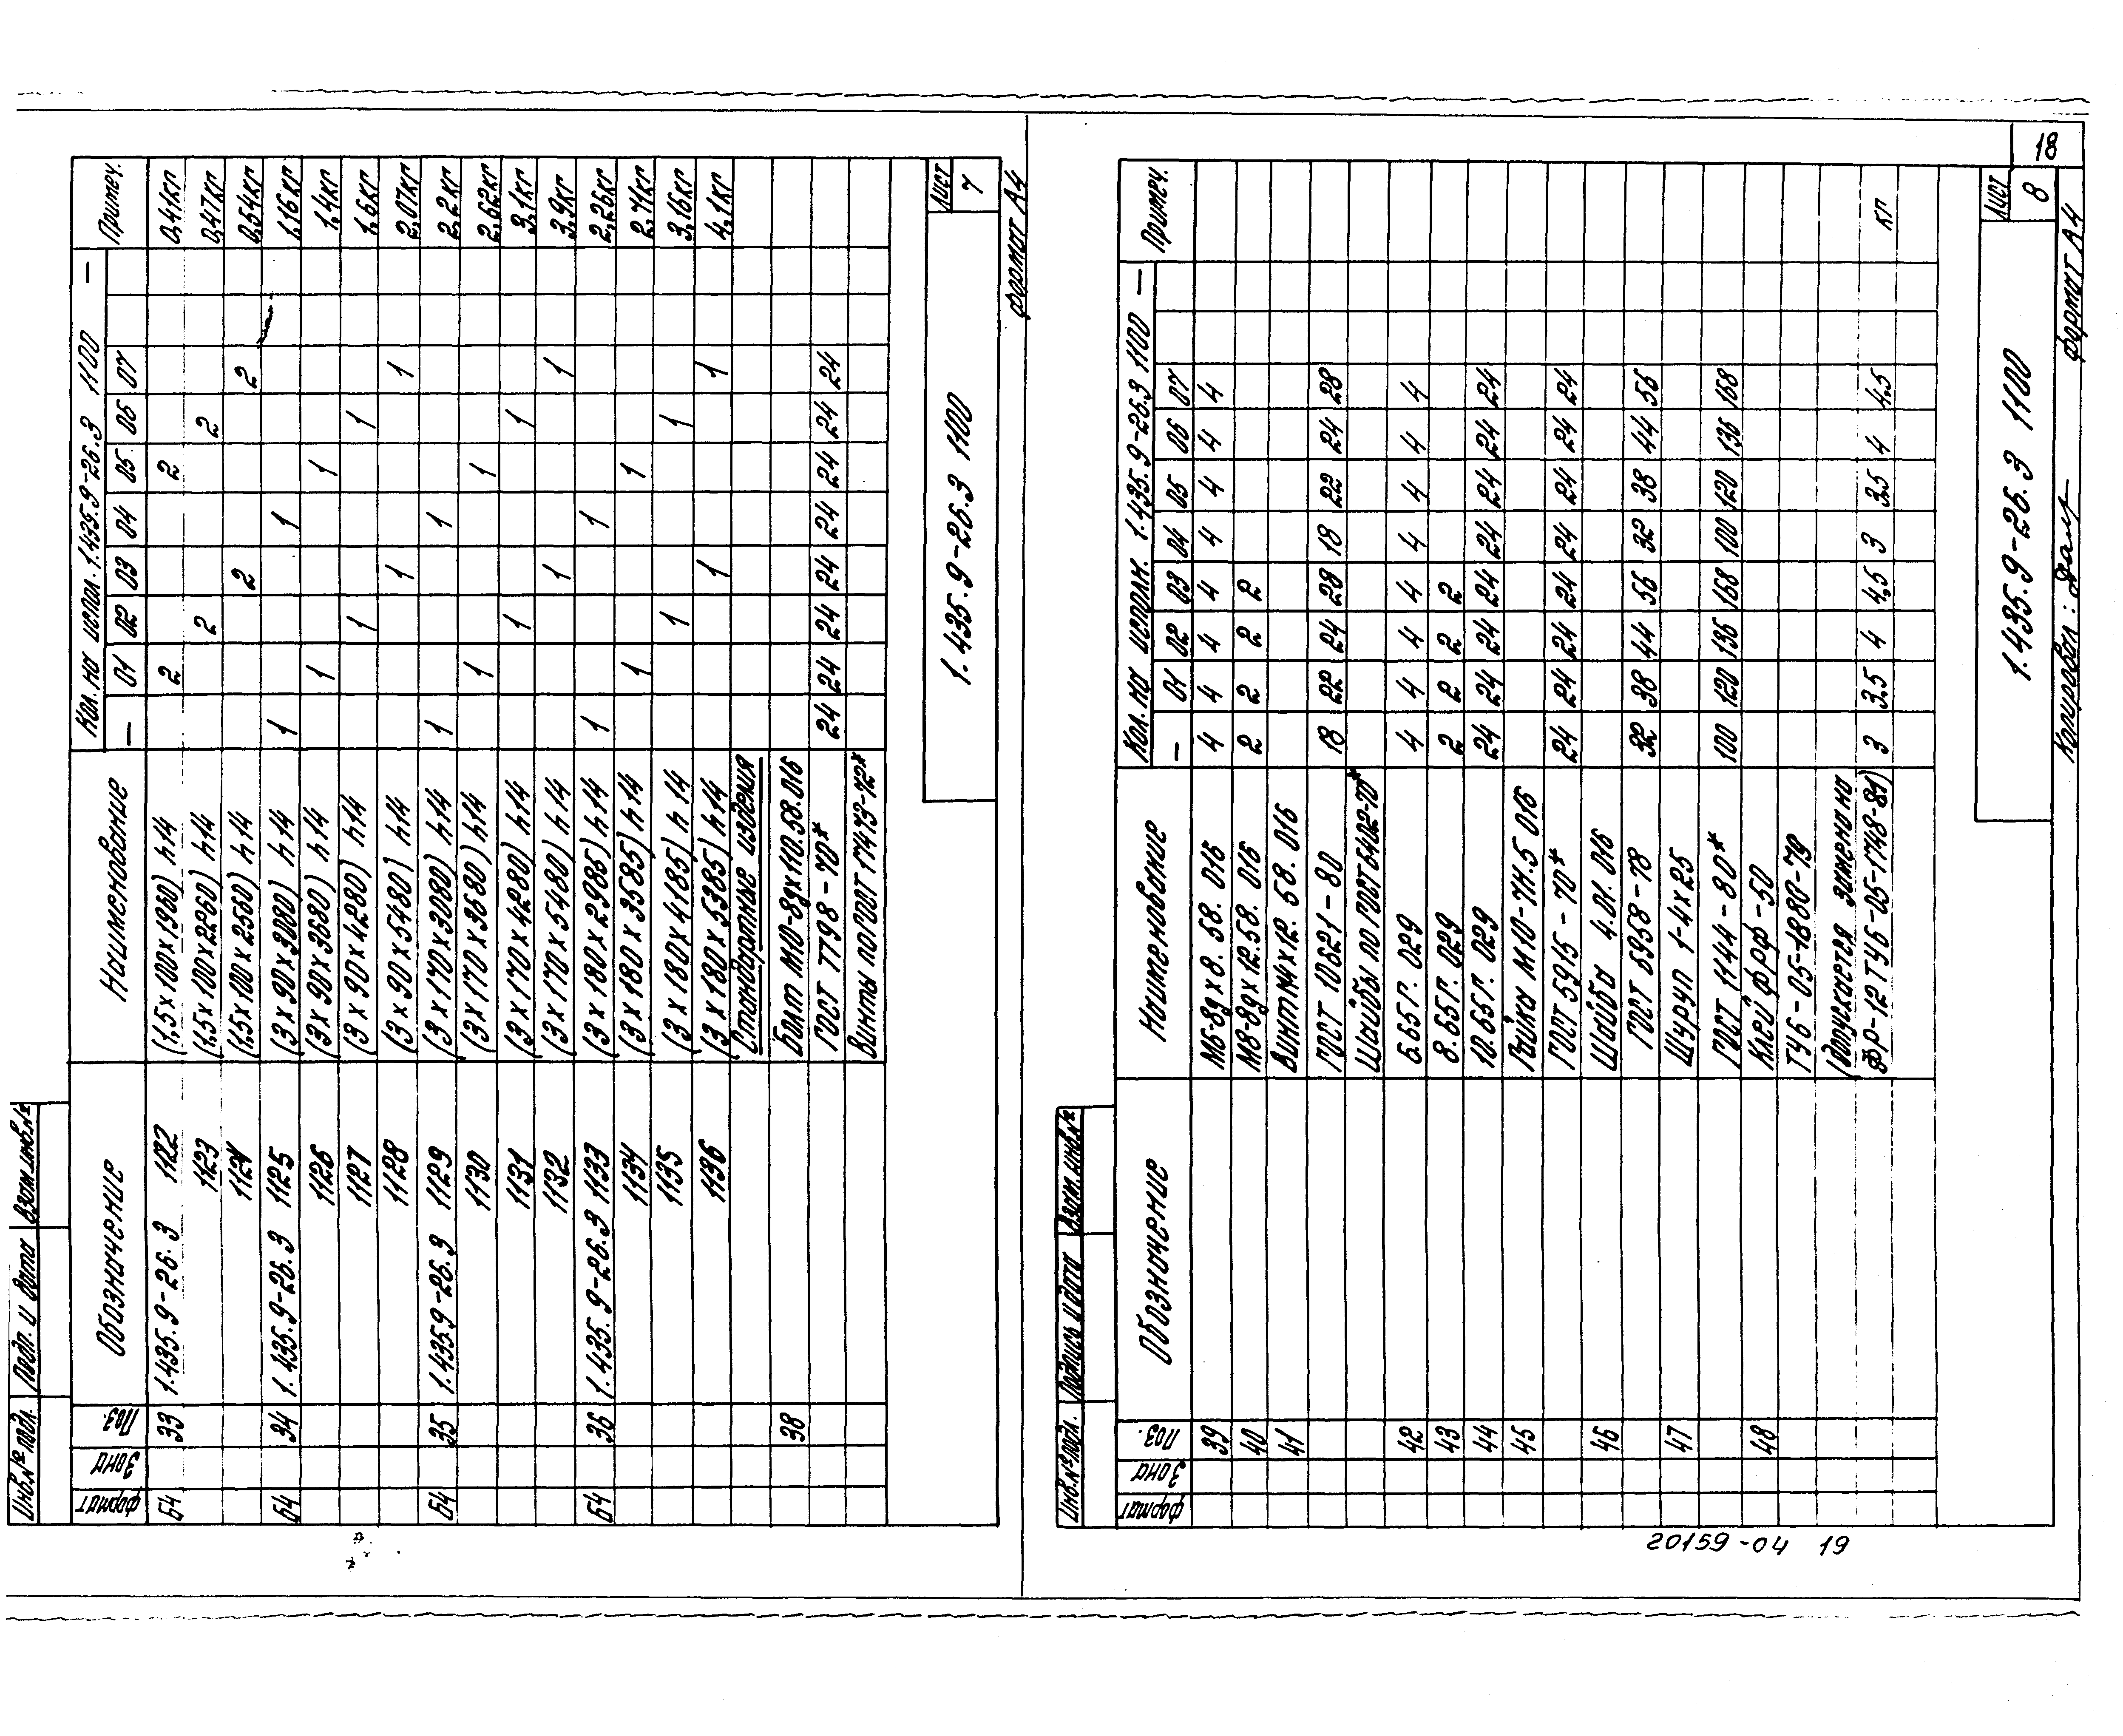 Инв.№ подл. Подп. и дата Взам.инв.№
Формат Зона Поз. Обозначение Наименование Кол. на испол. 1.435.9-26.3 1100 — Примеч.
— 01 02 03 04 05 06 07
Б4 33 1.435.9-26.3 1122 (1,5х100х1960) h14 2 2 0,41кг
1123 (1,5х100х2260) h14 2 2 0,47кг
1124 (1,5х100х2560) h14 2 2 0,54кг
Б4 34 1.435.9-26.3 1125 (3х90х3080) h14 1 1 1,16кг
1126 (3х90х3680) h14 1 1 1,4кг
1127 (3х90х4280) h14 1 1 1,6кг
1128 (3х90х5480) h14 1 1 2,07кг
Б4 35 1.435.9-26.3 1129 (3х170х3080) h14 1 1 2,2кг
1130 (3х170х3680) h14 1 1 2,62кг
1131 (3х170х4280) h14 1 1 3,1кг
1132 (3х170х5480) h14 1 1 3,9кг
Б4 36 1.435.9-26.3 1133 (3х180х2985) h14 1 1 2,26кг
1134 (3х180х3585) h14 1 1 2,71кг
1135 (3х180х4185) h14 1 1 3,16кг
1136 (3х180х5385) h14 1 1 4,1кг
Стандартные изделия
38 Болт М10-8gх110.58.016
ГОСТ 7798-70* 24 24 24 24 24 24 24 24
Винты по ГОСТ 17473-72*
1.435.9-26.3 1100
Лист
7
формат А4
18
Инв.№ подл. Подпись и дата Взам.инв.№
Формат Зона Поз. Обозначение Наименование Кол. на исполн. 1.435.9-26.3 1100 — Примеч.
— 01 02 03 04 05 06 07
39 М6-8gх8.58.016 4 4 4 4 4 4 4 4
40 М8-8gх12.58.016 2 2 2 2
41 Винт М4х12.58.016
ГОСТ 10621-80 18 22 24 28 18 22 24 28
Шайбы по ГОСТ 6402-70*
42 6.65Г.029 4 4 4 4 4 4 4 4
43 8.65Г.029 2 2 2 2
44 10.65Г.029 24 24 24 24 24 24 24 24
45 Гайка М10-7Н.5 016
ГОСТ 5915-70* 24 24 24 24 24 24 24 24
46 Шайба 4.01.016
ГОСТ 6958-78 32 38 44 56 32 38 44 56
47 Шуруп 1-4х25
ГОСТ 1144-80* 100 120 136 168 100 120 136 168
48 Клей ФРФ-50
ТУ6-05-1880-79
(допускается замена на
ФР-12 ТУ6-05-1748-81) 3 3.5 4 4,5 3 3.5 4 4.5 кг
1.435.9-26.3 1100
Лист
8
Копировал:
формат А4
20159-04 19